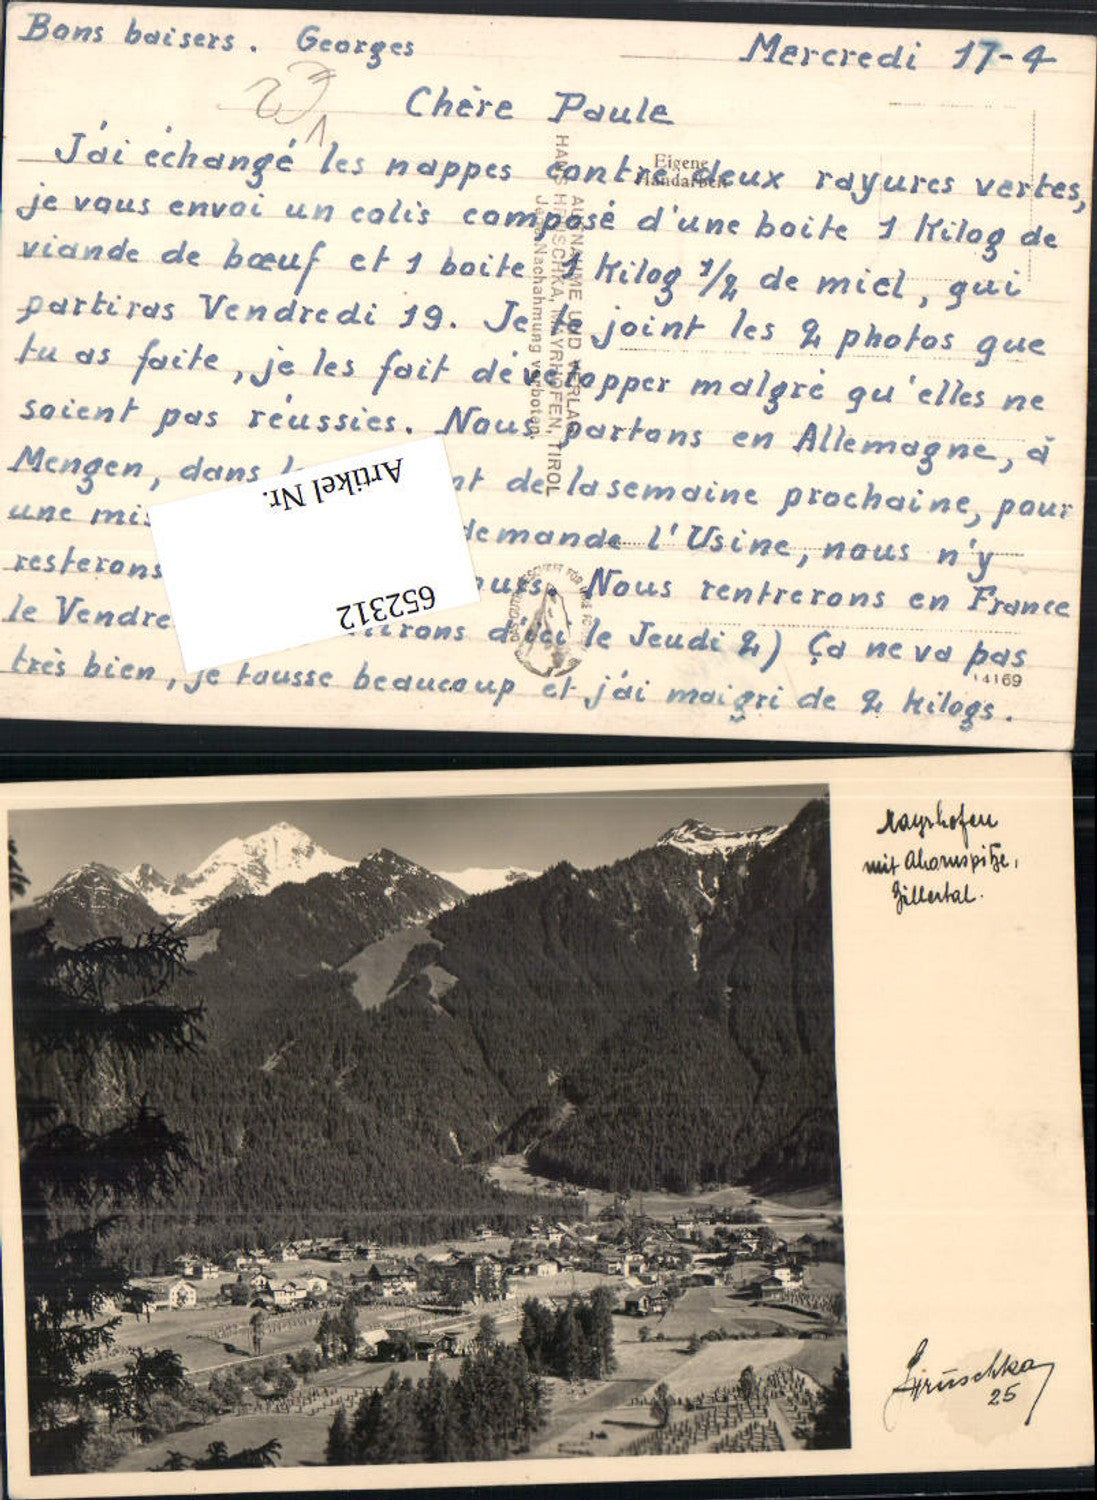 Bons baisers. Georges
Mercredi 17-4
Chère Paule
J'ai échangé les nappes contre deux rayures vertes,
je vous envoi un colis composé d'une boite 1 Kilog de
viande de bœuf et 1 boite 1 Kilog 1/2 de miel, qui
partiras Vendredi 19. Je te joint les 2 photos que
tu as faite, je les fait développer malgré qu'elles ne
soient pas réussies. Nous partons en Allemagne, à
Mengen, dans nt de la semaine prochaine, pour
une mis demande l'Usine, nous n'y
resterons ours. Nous rentrerons en France
le Vendre d'ici le Jeudi 2) Ça ne va pas
très bien, je tousse beaucoup et j'ai maigri de 2 kilogs.
Eigene
Handarbeit
AUFNAHME UND VERLAG
HANS HRUSCHKA, MAYRHOFEN, TIROL
Jede Nachahmung verboten.
14169
Artikel Nr.
652312
Mayrhofen
mit Ahornspitze,
Zillertal.
Hruschka
25